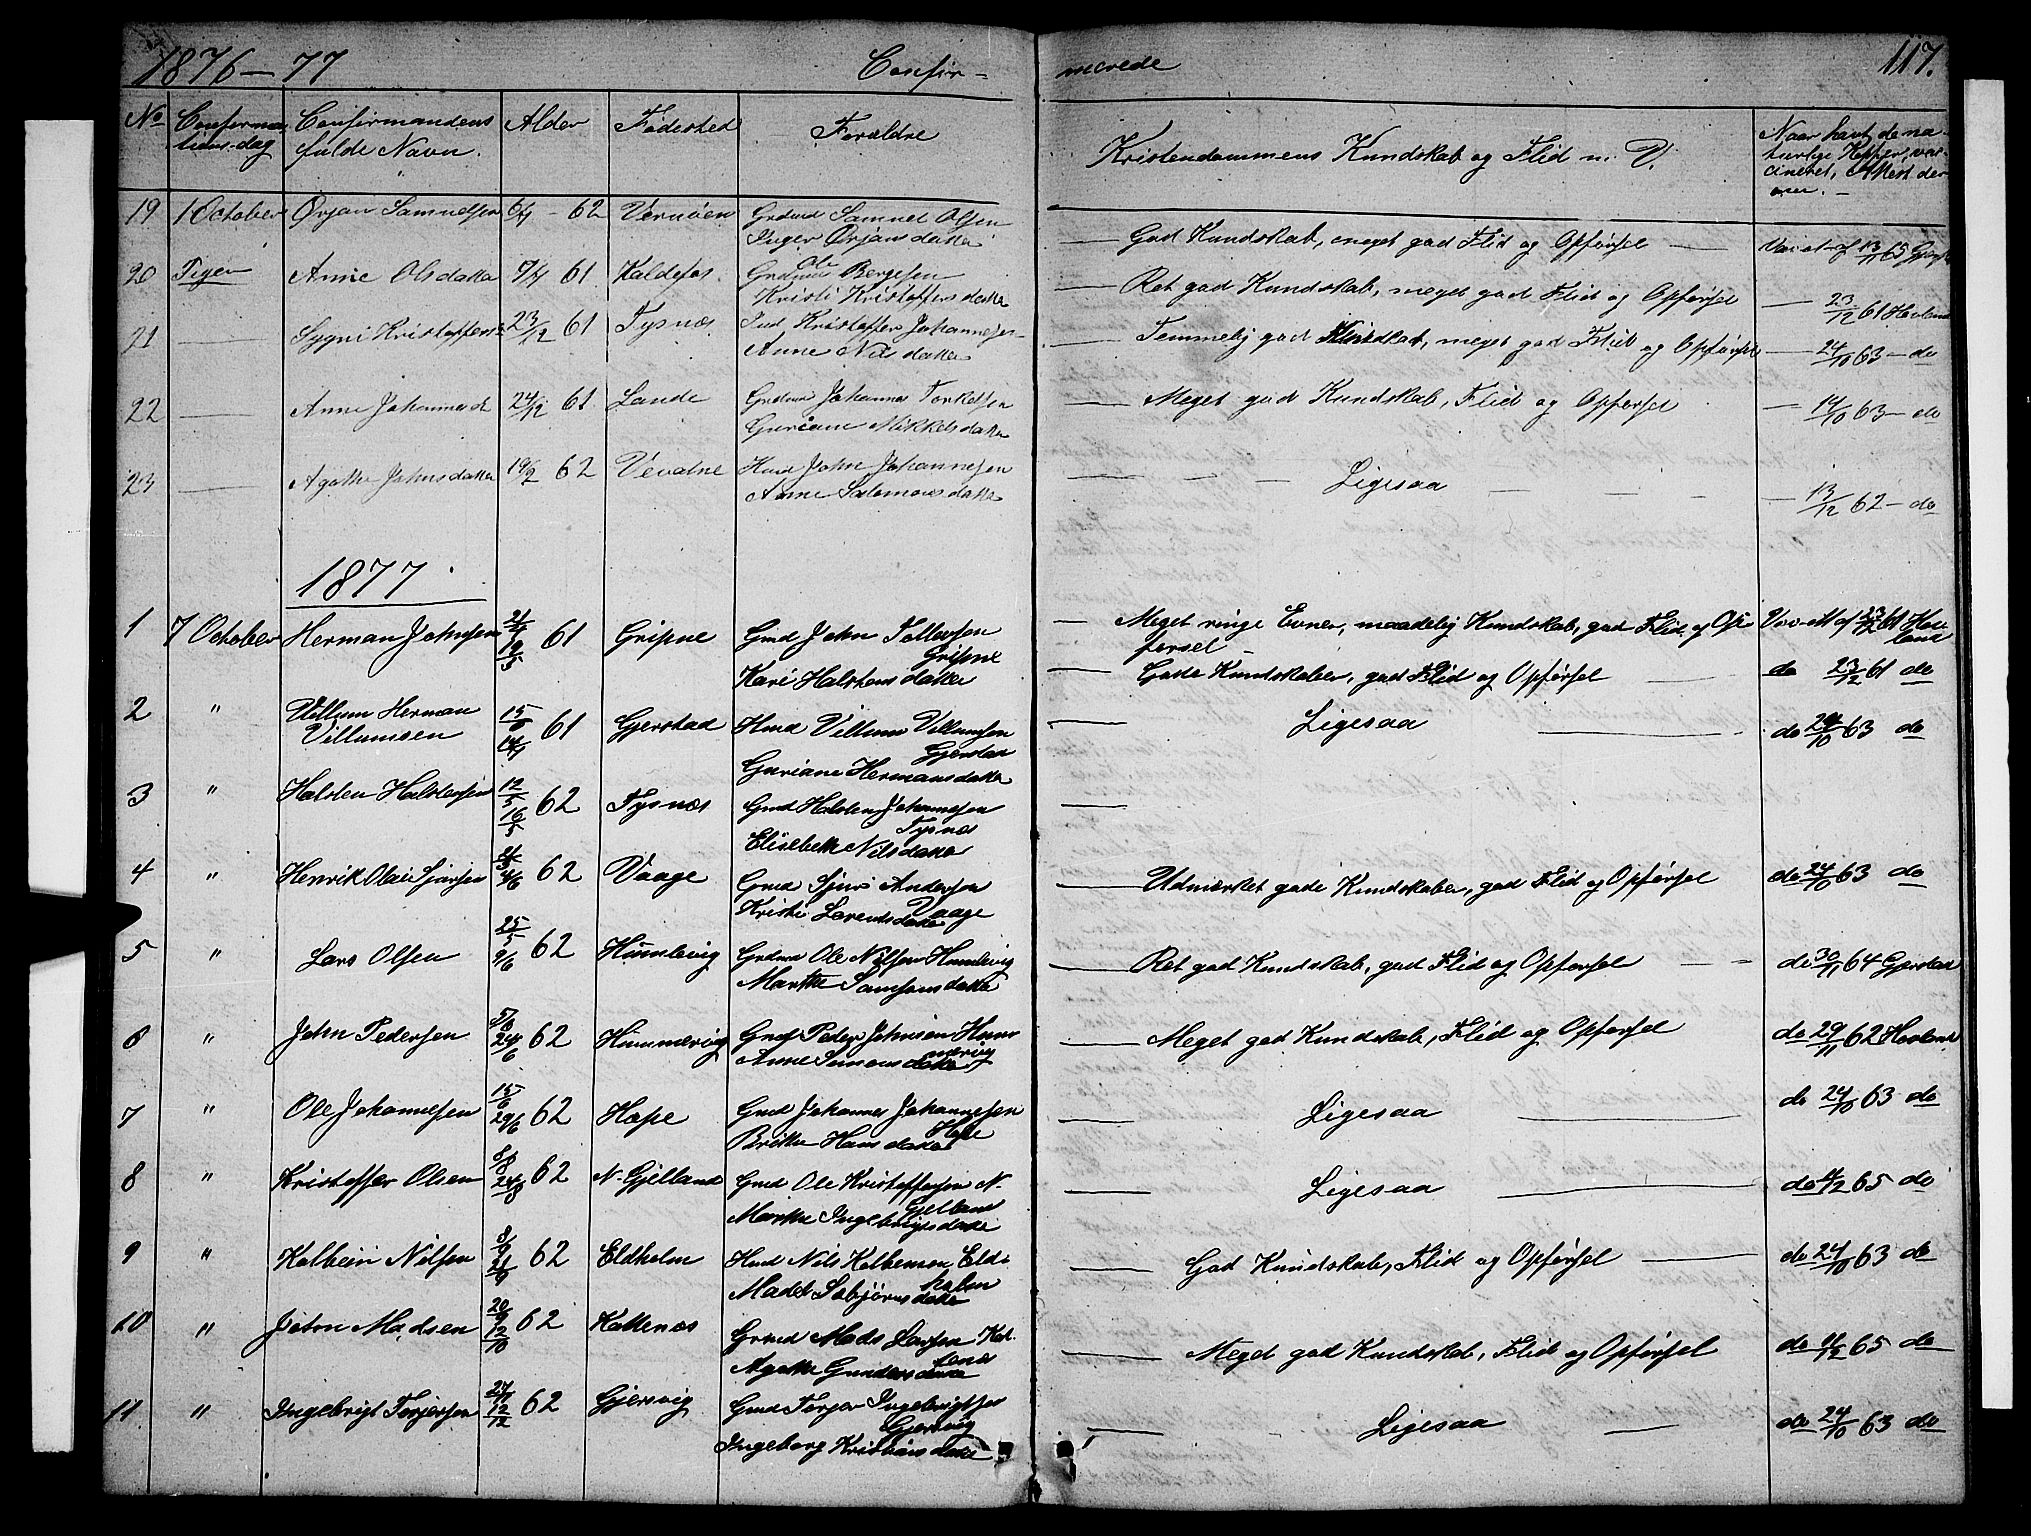 1876-77 Confir-
merede 117.
No Confirma- Confirmandens Alder Fødested Forældre
tions-dag fulde Navn.
Kristendommens Kundskab og Flid m. V. Naar havt de na-
turlige Kopper, vac-
cineret, Attest der-
om.-
19 1 October Ørjan Samuelsen 62 Vernøen Grdmd Samuel Olsen
Inger Ørjansdatter
God Kundskab, meget god Flid og Opførsel 13/11 65
20 Tysn Anne Olsdatter 7/4 61 Kaldefos. Grdmd Ole Bergesen
Kristi Kristoffersdatter
Ret god Kundskab, meget god Flid og Opførsel 23/12 61 Havland
21 Sygni Kristoffersd 23/12 61 Tysnæs Ind Kristoffer Johannesen
Anne Nilsdatter
Temmelig god Kundskab, meget god Flid og Opførsel 24/10 63 - do
22 Anne Johannesd 24/12 61. Lande Grdmd Johannes Torkelsen
Guriane Mikkelsdatter
Meget god Kundskab, Flid og Opførsel 14/10 63 - do
23 Agathe Johnsdatter 19/2 62 Vevatne Husmd John Johannesen
Anne Salomonsdatter
Ligesaa 13/12 62 - do
1877.
1 7 October Herman Johnsen 19/5 61 Gripne Gmd John Tollevsen
Gripne
Kari Halstensdatter
Meget ringe Evner, maadelig Kundskab, god Flid og Op-
førsel
2 " Villum Herman
Villumsen 61 Gjerstad Hmd Villum Villumsen
Gjerstad
Guriane Hermansdatter
Gode Kundskaber, god Flid og Opførsel do 23/12 61 do
3 " Halsten Halstensen 12/5 16/5 62 Tysnæs Gmd Halsten Johannesen
Tysnæs
Elisebeth Nilsdatter
Ligesaa do 24/10 63 do
4 " Henrik Olai Sjursen 62 Vaage Gmd Sjur Andersen
Vaage
Kristi Larentsdatter
Udmærket gode Kundskaber, god Flid og Opførsel do 24/10 63 do
5 " Lars Olsen 25/5 9/6 62 Humlevig Grdmd Ole Nilsen Humlevig
Marthe Samsonsdatter
Ret god Kundskab, god Flid og Opførsel do 30/11 64 Gjerstad
6 " John Pedersen 24/6 62 Hummervig Gmd Peder Johnsen Hum-
mervig
Anne Simonsdatter
Meget god Kundskab, Flid og Opførsel do 29/11 62 Havland
7 " Ole Johannesen 15/6 29/6 62 Hope Gmd Johannes Johannesen
Hope
Brithe Hansdatter
Ligesaa do 24/10 63 do
8 " Kristoffer Olsen 24/8 62 N. Gjelland Gmd Ole Kristoffersen N.
Gjelland
Marthe Ingebrigtsdatter
Ligesaa do 65 do
9 " Kolbein Nilsen 21/9 62 Eldholm Hmd Nils Kolbensen Eld-
holm
Madel Sebjørnsdatter
God Kundskab, Flid og Opførsel do 24/10 63 do
10 " Jeton Madsen 20/9 12/10 62 Kattenæs Grmd Mads Larsen Kat-
tenæs
Agathe Gundersdatter
Meget god Kundskab, Flid og Opførsel do 65 do
11 " Ingebrigt Torjersen 12/12 62 Gjersvig Gmd Torjer Ingebrigtsen
Gjersvig
Ingeborg Kristiansdatter
Ligesaa do 24/10 63 do